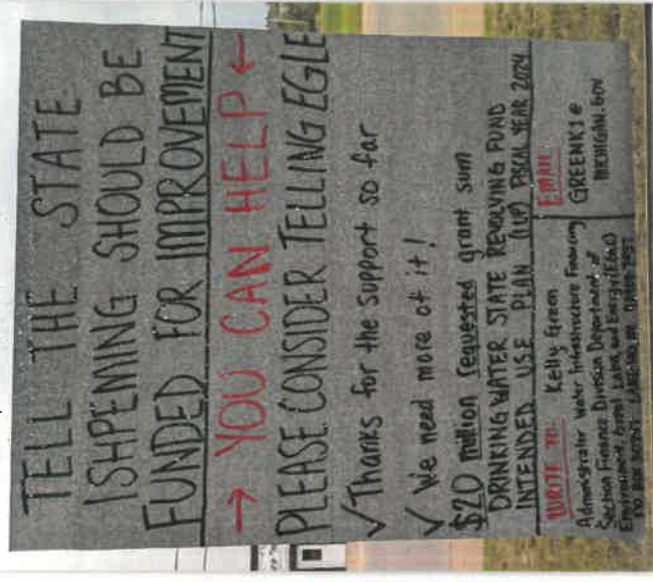 TELL THE STATE
ISHPEMING SHOULD BE
FUNDED FOR IMPROVEMENT
→ YOU CAN HELP ←
PLEASE CONSIDER TELLING EGLE
✓ Thanks for the support so far
✓ We need more of it!
$20 million requested grant sum
DRINKING WATER STATE REVOLVING FUND
INTENDED USE PLAN (IUP) FISCAL YEAR 2024
WRITE TO: Kelly Green
Administrator Water Infrastructure Financing
Section Finance Division Department of
Environment, Great Lakes, and Energy (EGLE)
PO BOX
EMAIL:
GREENK1@
MICHIGAN.GOV